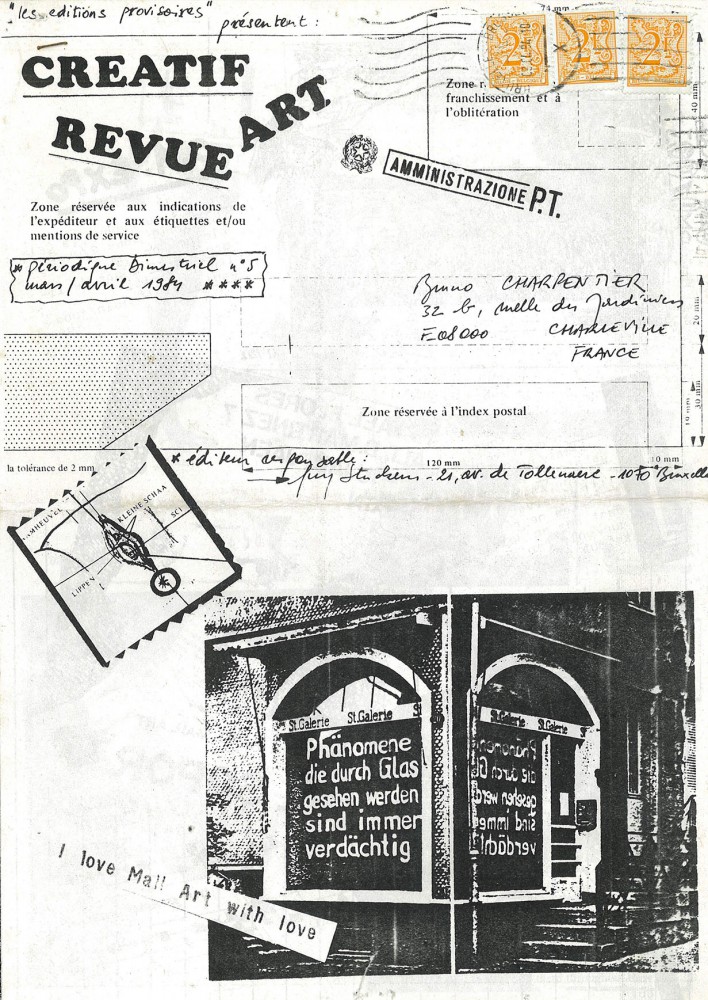 "les editions provisoires" présentent :
CREATIF
REVUE ART
74 mm
2F 2F 2F
Zone r
franchissement et à
l'oblitération
40 mm
AMMINISTRAZIONE P.T.
Zone réservée aux indications de
l'expéditeur et aux étiquettes et/ou
mentions de service
* périodique bimestriel n°5
mars/avril 1984 ****
Bruno CHARPENTIER
32 b, ruelle des Jardiniers
F-08000 CHARLEVILLE
FRANCE
20 mm
Zone réservée à l'index postal
la tolérance de 2 mm
120 mm
10 mm
* éditeur responsable :
Guy Stuckens - 21, av. de Tollenaere - 1070 Bruxelle
KLEINE SCHAA
SCI
LIPPEN
St.Galerie St.Galerie
Phänomene
die durch Glas
gesehen werden
sind immer
verdächtig
St.Galerie St.Galerie
Phänomen
die durch Gl
gesehen werd
sind imme
verdächt
I love Mail Art with love